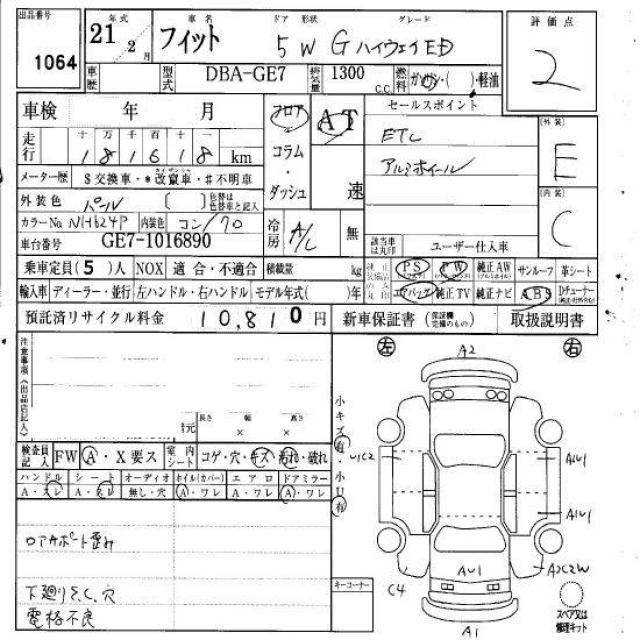 出品番号 1064
年式 21年2月
車名 フィット
ドア 形状 5W
グレード GハイウェイED
評価点 2
車歴
型式 DBA-GE7
排気量 1300 c.c.
燃料 ガソリン・( )・軽油
車検 年 月
フロア・コラム・ダッシュ
AT 速
セールスポイント
ETC
アルミホイール
[外装] E
[内装] C
走行 十万千百十一
181618 km
メーター歴 $交換車・*改竄車・#不明車
外装色 パール [ ] 色替は色替車と記入
カラーNo. NH624P 内装色 コン/クロ
冷房 A/C 無
車台番号 GE7-1016890
該当車は丸印 ユーザー仕入車
乗車定員(5)人 NOX 適合・不適合 積載量 kg
PS PW 純正AW サンルーフ 革シート
輸入車 ディーラー・並行 左ハンドル・右ハンドル モデル年式( )年
エアバッグ 純正TV 純正ナビ ABS Dチューナー
預託済リサイクル料金 10,810円
新車保証書 (保証欄完備のもの) 取扱説明書
注意事項(出品店記入)
左 右
長さ 幅 高さ
× ×
小キズ有・小凹有
検査員記入 FW A・X要ス 室内シート コゲ・穴・キズ・汚れ・破れ
ハンドル シート オーディオ ホイル(カバー) エアロ ドアミラー
A・スレ A・スレ 無し・穴 A・ワレ A・ワレ A・ワレ
ロアサポート歪み
下廻りS,C,穴
電格不良
キーコーナー
A2
U1C2
A1U1
A1U1
AU1
C4
A2C2W
A1
スペア又は修理キット